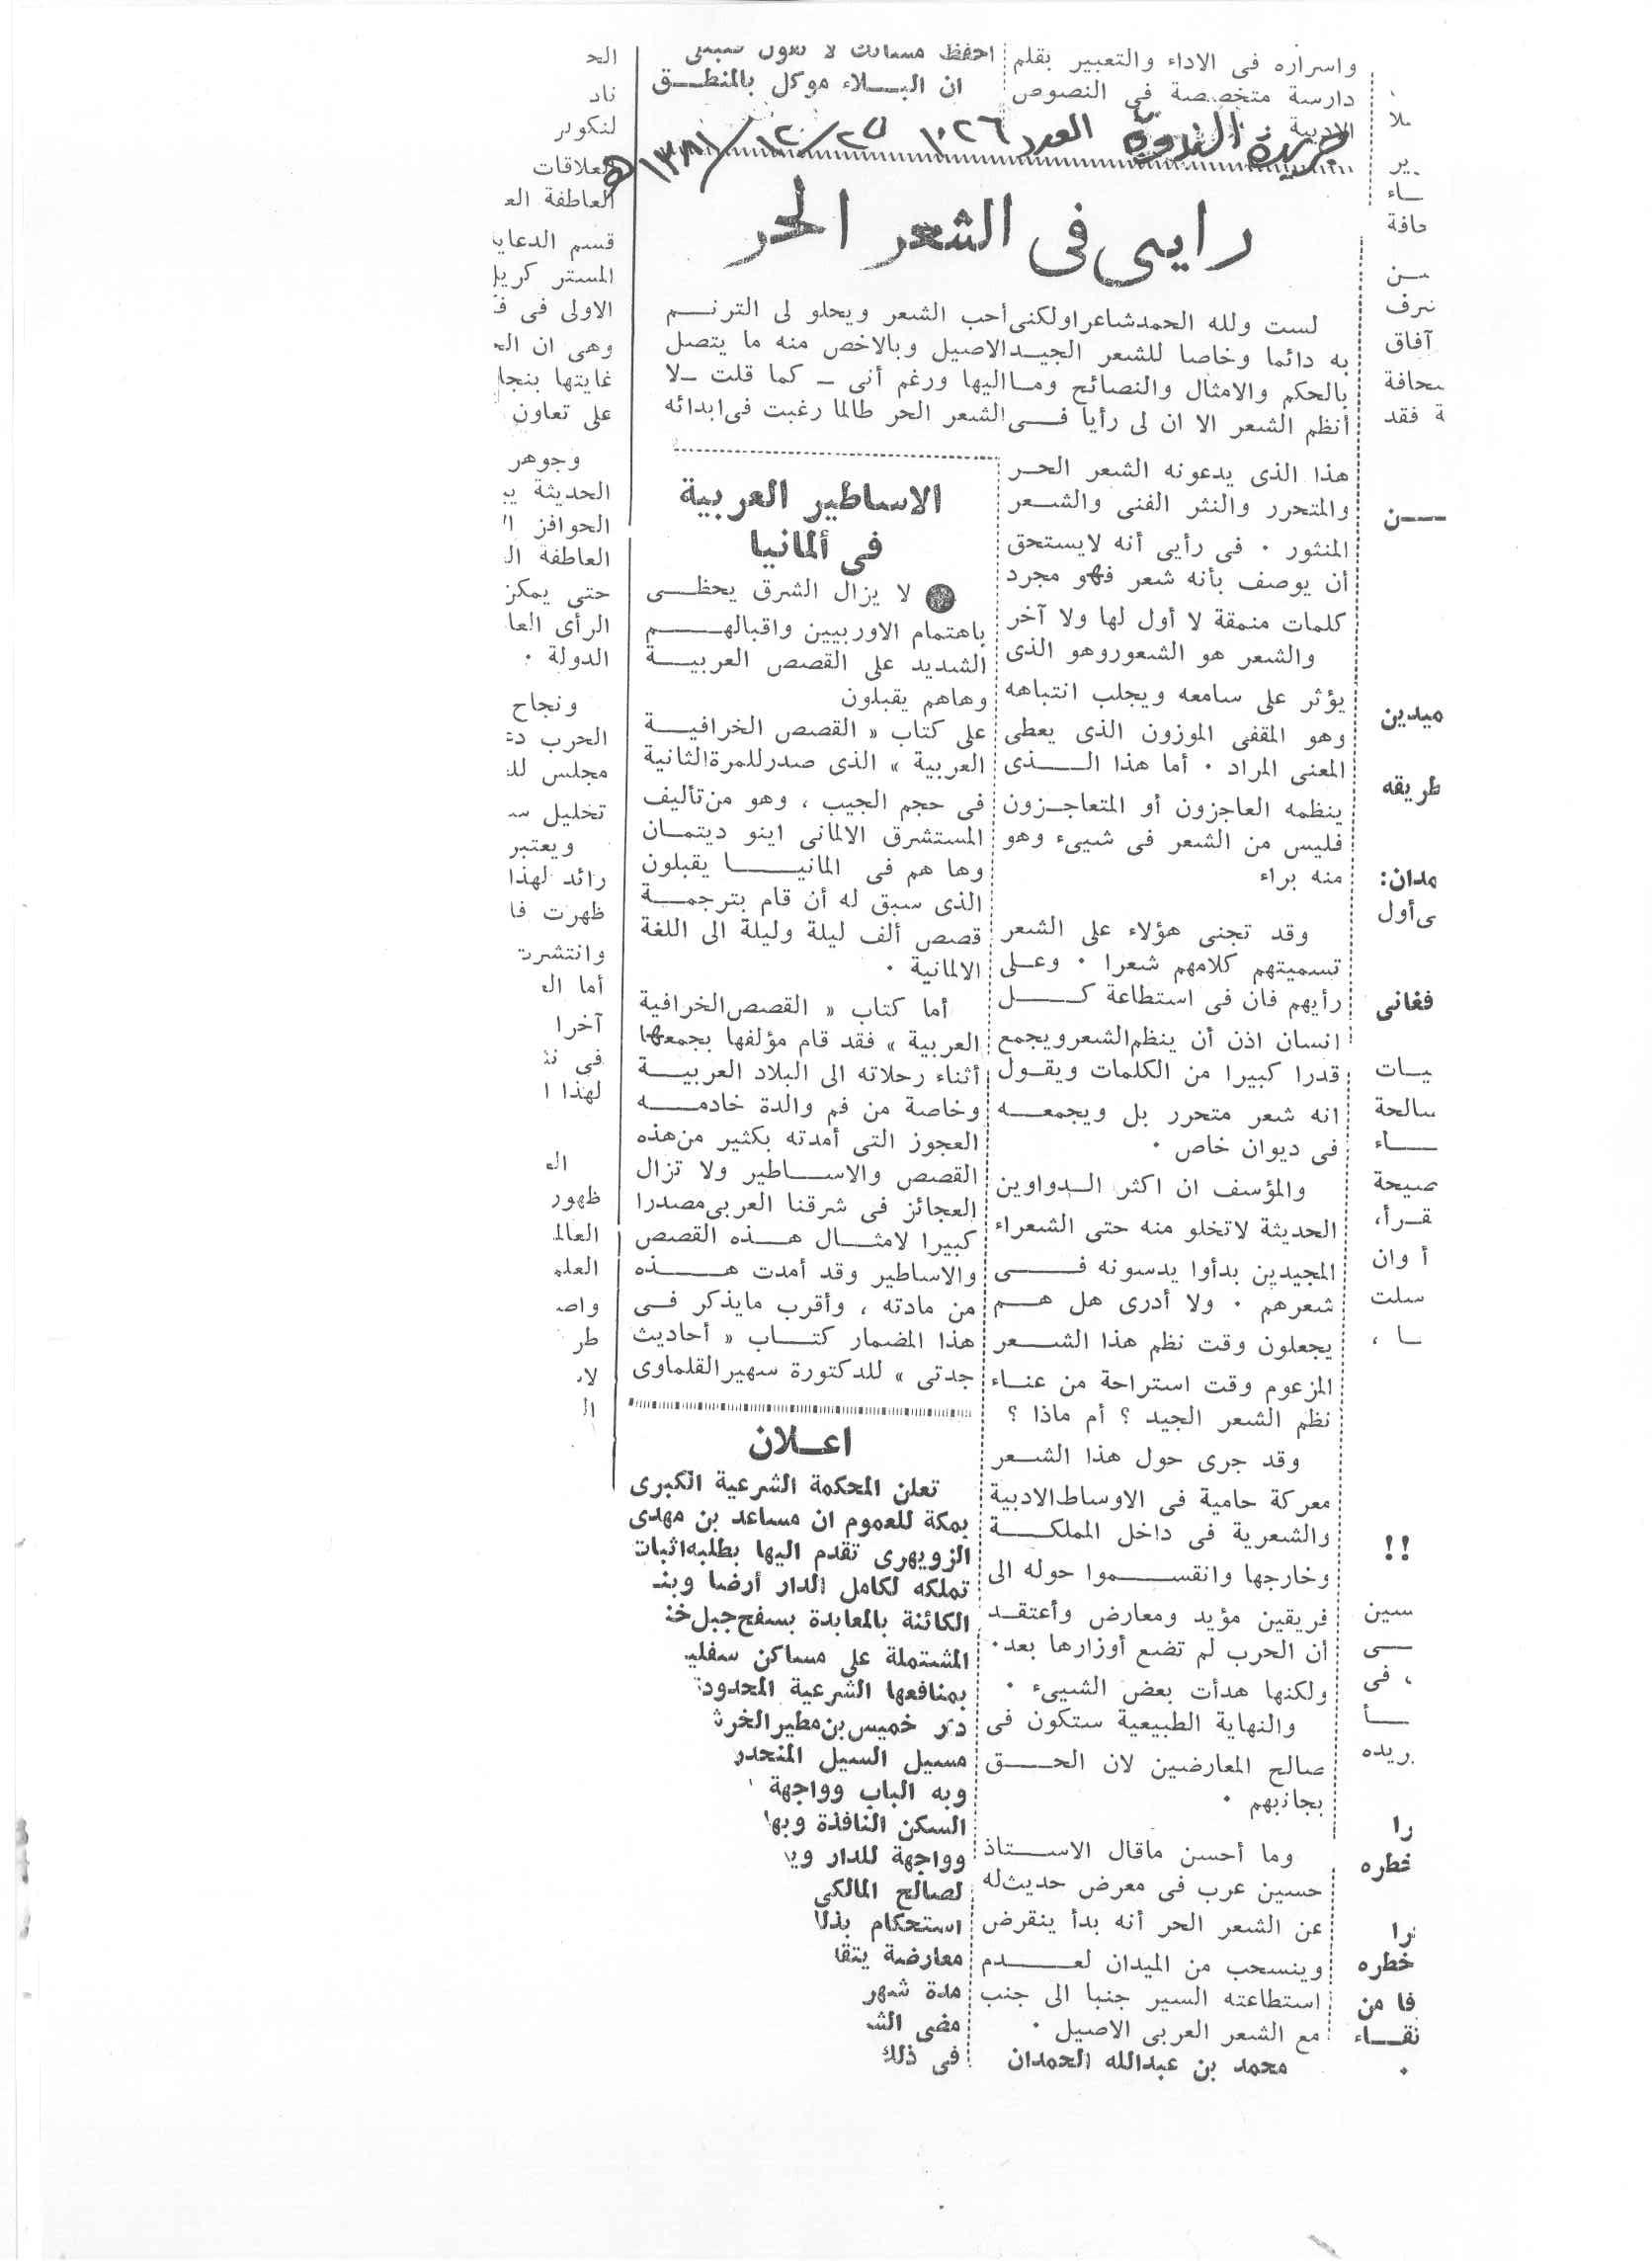 واسراره فى الاداء والتعبير بقلم
دارسة متخصصة فى النصوص
الادبية
احفظ لسانك لا تقول
ان البـــلاء موكل بالمنطــق
جريدة الندوة العدد ١٠٢٦ ٢٥/١٢/١٣٨١هـ
رايى فى الشعر الحر
لست ولله الحمد شاعرا ولكنى أحب الشعر ويحلو لى الترنــم
به دائما وخاصا للشعر الجيــد الاصيل وبالاخص منه ما يتصل
بالحكم والامثال والنصائح ومــا اليها ورغم أنى ــ كما قلت ــ لا
أنظم الشعر الا ان لى رأيا فــى الشعر الحر طالما رغبت فى ابدائه
هذا الذى يدعونه الشعر الحــر
والمتحرر والنثر الفنى والشــعر
المنثور ٠ فى رأيى أنه لا يستحق
أن يوصف بأنه شعر فهو مجرد
كلمات منمقة لا أول لها ولا آخر
والشعر هو الشعور وهو الذى
يؤثر على سامعه ويجلب انتباهه
وهو المقفى الموزون الذى يعطى
المعنى المراد ٠ أما هذا الـــذى
ينظمه العاجزون أو المتعاجــزون
فليس من الشعر فى شيىء وهو
منه براء
وقد تجنى هؤلاء على الشعر
تسميتهم كلامهم شعرا ٠ وعــلى
رأيهم فان فى استطاعة كـــل
انسان اذن أن ينظم الشعر ويجمع
قدرا كبيرا من الكلمات ويقــول
انه شعر متحرر بل ويجمعــه
فى ديوان خاص ٠
والمؤسف ان اكثر الــدواوين
الحديثة لاتخلو منه حتى الشعراء
المجيدين بدأوا يدسونه فـــى
شعرهم ٠ ولا أدرى هل هــم
يجعلون وقت نظم هذا الشــعر
المزعوم وقت استراحة من عنــاء
نظم الشعر الجيد ؟ أم ماذا ؟
وقد جرى حول هذا الشــعر
معركة حامية فى الاوساط الادبية
والشعرية فى داخل المملكـــة
وخارجها وانقســـموا حوله الى
فريقين مؤيد ومعارض وأعتقــد
أن الحرب لم تضع أوزارها بعد ٠
ولكنها هدأت بعض الشيىء ٠
والنهاية الطبيعية ستكون فى
صالح المعارضين لان الحـــق
بجانبهم ٠
وما أحسن ماقال الاســـتاذ
حسين عرب فى معرض حديث له
عن الشعر الحر أنه بدأ ينقرض
وينسحب من الميدان لعـــدم
استطاعته السير جنبا الى جنب
مع الشعر العربى الاصيل ٠
محمد بن عبدالله الحمدان
الاساطير العربية
فى ألمانيا
لا يزال الشرق يحظــى
باهتمام الاوربيين واقبالهـــم
الشديد على القصص العربيــة
وهاهم يقبلون
على كتاب « القصص الخرافيــة
العربية » الذى صدر للمرة الثانية
فى حجم الجيب ، وهو من تأليف
المستشرق الالمانى اينو ديتمــان
وها هم فى المانيـــا يقبلون
الذى سبق له أن قام بترجمــة
قصص ألف ليلة وليلة الى اللغة
الالمانية ٠
أما كتاب « القصص الخرافية
العربية » فقد قام مؤلفها بجمعها
أثناء رحلاته الى البلاد العربيــة
وخاصة من فم والدة خادمــه
العجوز التى أمدته بكثير من هذه
القصص والاســـاطير ولا تزال
العجائز فى شرقنا العربى مصدرا
كبيرا لامثــال هــذه القصص
والاساطير وقد أمدت هـــذه
من مادته ، وأقرب مايذكر فــى
هذا المضمار كتــاب « أحاديث
جدتى » للدكتورة سهير القلماوى
اعــلان
تعلن المحكمة الشرعية الكبرى
بمكة للعموم ان مساعد بن مهدى
الزويهرى تقدم اليها بطلبه اثبات
تملكه لكامل الدار أرضا وبنـ
الكائنة بالمعابدة بسفح جبل خنـ
المشتملة على مساكن سفليـ
بمنافعها الشرعية المحدود
دار خميس بن مطير الخر
مسيل السيل المنحدر
وبه الباب وواجهة
السكن النافذة وبها
وواجهة للدار وي
لصالح المالكى
استحكام بذلك
معارضة يتقا
مدة شهر
مضى الشـ
فى ذلك
الحـ
ناد
لنكولن
العلاقات
العاطفة العـ
قسم الدعايـ
المستر كريل
الاولى فى
وهى ان الـ
غايتها بنجا
على تعاون
وجوهر
الحديثة يـ
الحوافز الـ
العاطفة الـ
حتى يمكن
الرأى العا
الدولة ٠
ونجاح
الحرب دعـ
مجلس للـ
تخليل سـ
ويعتبر
رائد لهذا
ظهرت فا
وانتشرت
أما الـ
آخرا
فى
لهذا ا
الـ
ظهور
العالـ
العلـ
واصـ
طر
لا
الـ
ـير
ـاء
حافة
ـن
شرف
آفاق
صحافة
ة فقد
ــن
ميدين
طريقه
مدان:
ى أول
فغانى
يــات
سالحة
ــاء
صيحة
قــرأ،
أ وان
سلت
ـا ،
!!
سين
ــى
، فى
ــأ
بريده
را
خطره
را
خطره
فا من
نقــاء
٠